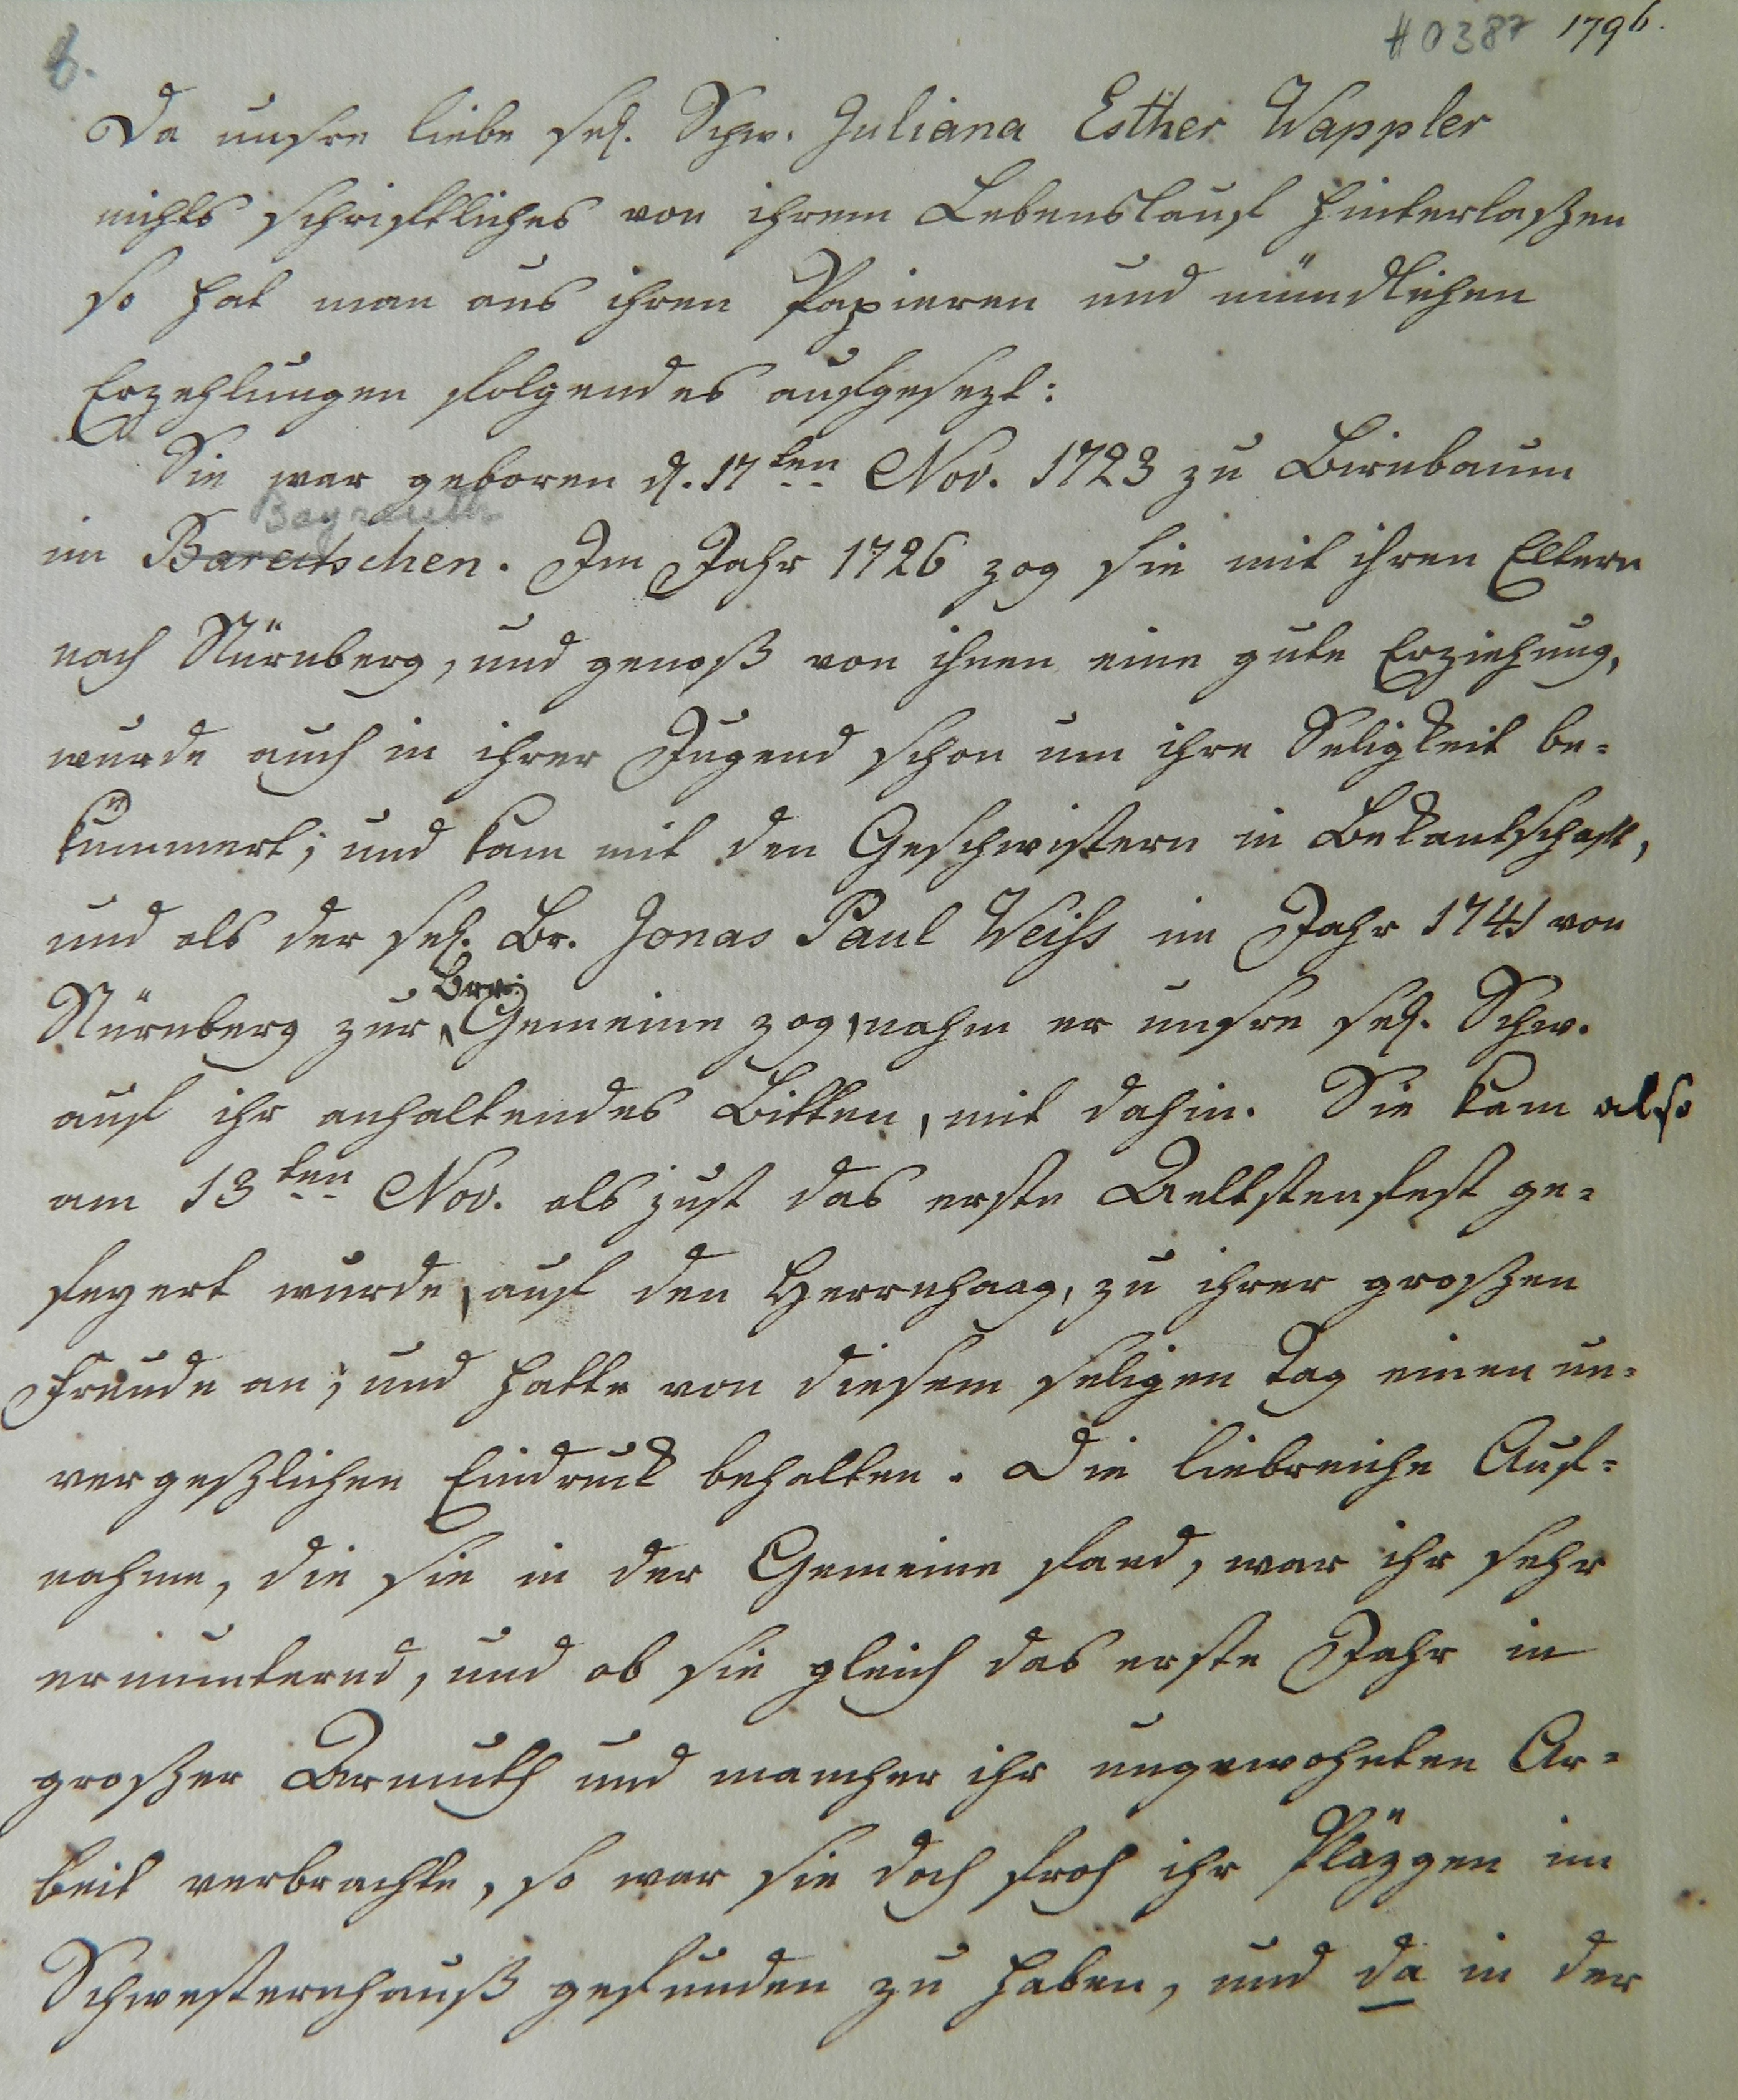 6. #0387 1796.
Da unsre liebe sel. Schw. Juliana Esther Wappler
nichts schriftliches von ihrem Lebenslauf hinterlaszen
so hat man aus ihren Papieren und mündlichen
Erzehlungen folgendes aufgesezt:
Sie war geboren d. 17ten Nov. 1723 zu Birnbaum
Bayreuth
im Bareitschen. Im Jahr 1726 zog sie mit ihren Eltern
nach Nürnberg, und genoß von ihnen eine gute Erziehung,
wurde auch in ihrer Jugend schon um ihre Seligkeit be-
kümmert; und kam mit den Geschwistern in Bekantschaft,
und als der sel. Br. Jonas Paul Weiss im Jahr 1741 von
Nürnberg zur Gemeine zog, nahm er unsre sel. Schw.
auf ihr anhaltendes Bitten, mit dahin. Sie kam also
am 13ten Nov. als just das erste Aeltstenfest ge-
feyert wurde, auf den Herrnhaag, zu ihrer groszen
Freude an; und hatte von diesem seligen Tag einen un-
vergeszlichen Eindruck behalten. Die liebreiche Auf-
nahme, die sie in der Gemeine fand, war ihr sehr
ermunternd, und ob sie gleich das erste Jahr in
groszer Armuth und mancher ihr ungewohnten Ar-
beit verbrachte, so war sie doch froh ihr Pläzgen im
Schwesternhauß gefunden zu haben, und da in der